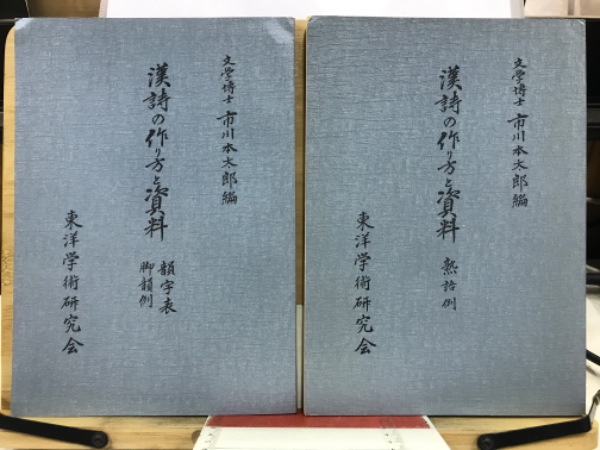 文学博士 市川本太郎編
漢詩の作り方と資料
韻字表
脚韻例
東洋学術研究会
文学博士 市川本太郎編
漢詩の作り方と資料 熟語例
東洋学術研究会